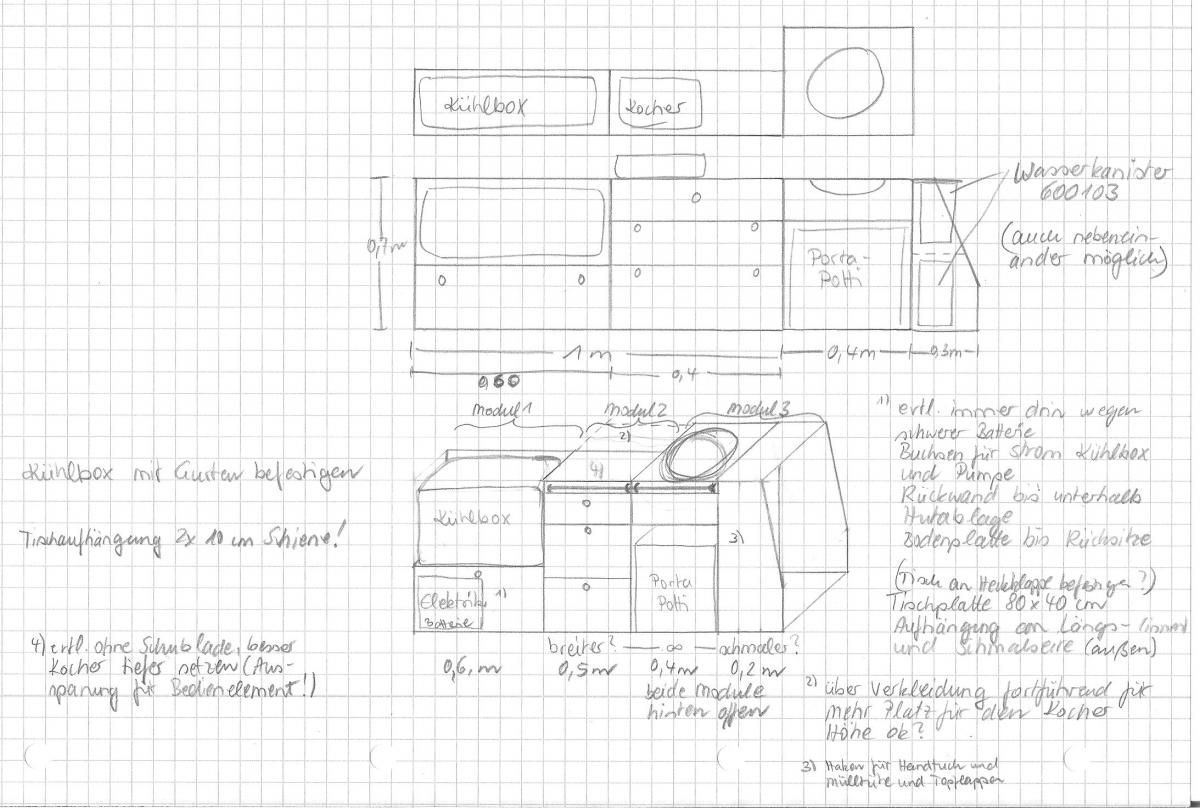 Kühlbox
Kocher
Wasserkanister
600103
(auch nebenein-
ander möglich)
0,7m
Porta-
Potti
1m
0,4m
0,3m
0,60
0,4
modul 1
modul 2
modul 3
2)
4)
Kühlbox mit Gurten befestigen
Tischaufhängung 2x 10 cm Schiene!
Kühlbox
Elektrik
Batterie
1)
Porta
Potti
3)
0,6m
breiter?
0,5m
∞
0,4m
schmaler?
0,2m
beide Module
hinten offen
4) evtl. ohne Schublade, besser
Kocher tiefer setzen (Aus-
sparung für Bedienelement!)
1) evtl. immer drin wegen
schwerer Batterie
Buchsen für Strom Kühlbox
und Pumpe
Rückwand bis unterhalb
Hutablage
Bodenplatte bis Rücksitze
(Tisch an Heckklappe befestigen?)
Tischplatte 80x40 cm
Aufhängung an Längs- (innen)
und Schmalseite (außen)
2) über Verkleidung fortführend für
mehr Platz für den Kocher
Höhe ok?
3) Haken für Handtuch und
Mülltüte und Topflappen